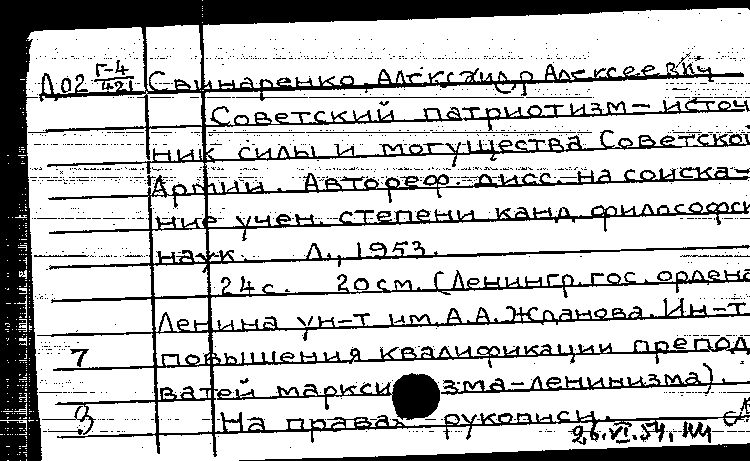 Д02 Г-4/421 Свинаренко, Александр Алексеевич
Советский патриотизм – источ
ник силы и могущества Советской
Армии. Автореф. дисс. на соиска-
ние учен. степени канд. философск
наук. Л., 1953.
24 с. 20 см. (Ленингр. гос. ордена
Ленина ун-т им. А.А. Жданова. Ин-т
7 повышения квалификации препод
ватей маркси зма-ленинизма).
3 На правах рукописи.
26.VI.54.